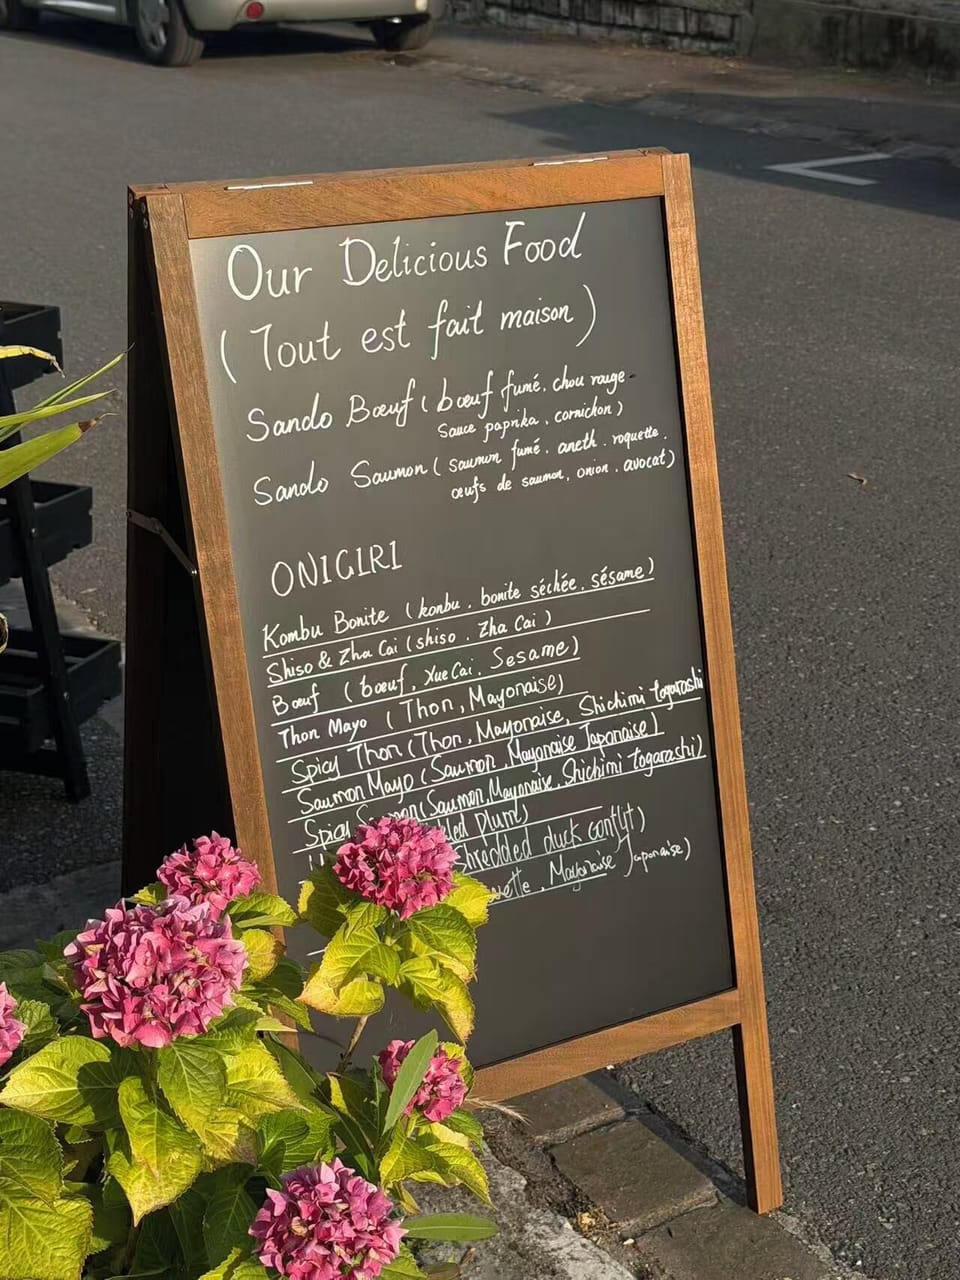 Our Delicious Food
( Tout est fait maison )
Sando Bœuf ( bœuf fumé, chou rouge
sauce paprika, cornichon )
Sando Saumon ( saumon fumé, aneth, roquette,
œufs de saumon, onion, avocat )
ONIGIRI
Kombu Bonite ( konbu, bonite séchée, sésame )
Shiso & Zha Cai ( shiso, Zha Cai )
Bœuf ( bœuf, Xue Cai, Sesame )
Thon Mayo ( Thon, Mayonaise )
Spicy Thon ( Thon, Mayonaise, Shichimi togarashi
Saumon Mayo ( Saumon, Mayonaise Japonaise )
Spicy ( Saumon, Mayonaise, Shichimi togarashi )
Plum )
Shredded duck confit )
Mayonaise Japonaise )